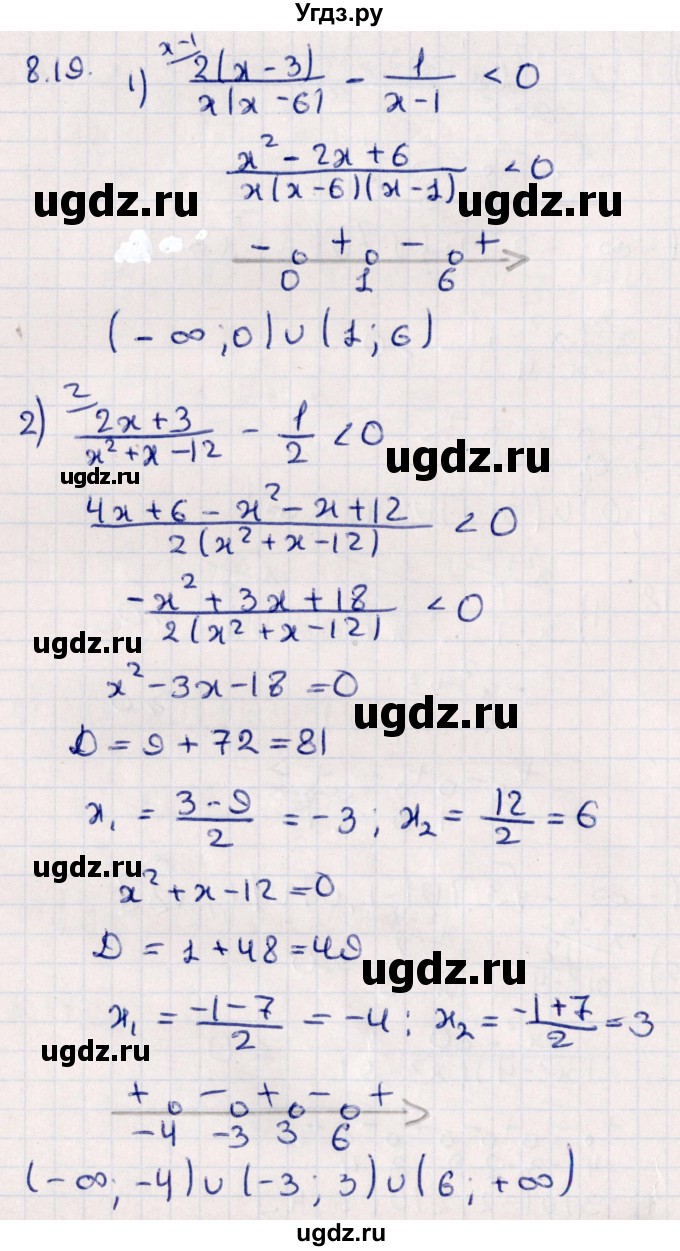 Угдз.ру
8.19. 1) x-1 2(x-3)/x(x-6) - 1/x-1 < 0
x² - 2x + 6/x(x-6)(x-1) < 0
ugdz.ru ugdz.ru
- + - +
0 1 6
(-∞; 0) ∪ (1; 6)
2) 2 2x+3/x²+x-12 - 1/2 < 0
ugdz.ru
ugdz.ru
4x+6-x²-x+12/2(x²+x-12) < 0
-x²+3x+18/2(x²+x-12) < 0
ugdz.ru
x²-3x-18=0
ugdz.ru
D = 9+72=81
x₁ = 3-9/2 = -3; x₂ = 12/2 = 6
ugdz.ru
x²+x-12=0
D = 1+48=49
ugdz.ru
x₁ = -1-7/2 = -4; x₂ = -1+7/2 = 3
ugdz.ru
+ - + - +
-4 -3 3 6
(-∞; -4) ∪ (-3; 3) ∪ (6; +∞)
ugdz.ru